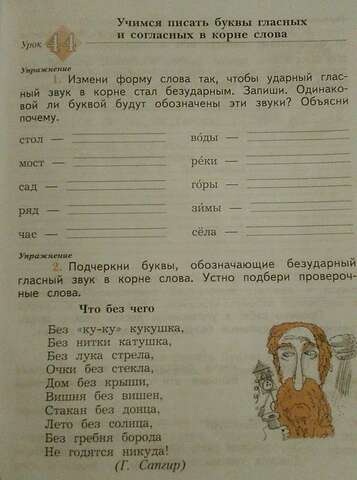 Учимся писать буквы гласных
и согласных в корне слова
Урок 44
Упражнение
1. Измени форму слова так, чтобы ударный глас-
ный звук в корне стал безударным. Запиши. Одинако-
вой ли буквой будут обозначены эти звуки? Объясни
почему.
стол — во́ды —
мост — ре́ки —
сад — го́ры —
ряд — зи́мы —
час — сёла —
Упражнение
2. Подчеркни буквы, обозначающие безударный
гласный звук в корне слова. Устно подбери провероч-
ные слова.
Что без чего
Без «ку-ку» кукушка,
Без нитки катушка,
Без лука стрела,
Очки без стекла,
Дом без крыши,
Вишня без вишен,
Стакан без донца,
Лето без солнца,
Без гребня борода
Не годятся никуда!
(Г. Сапгир)